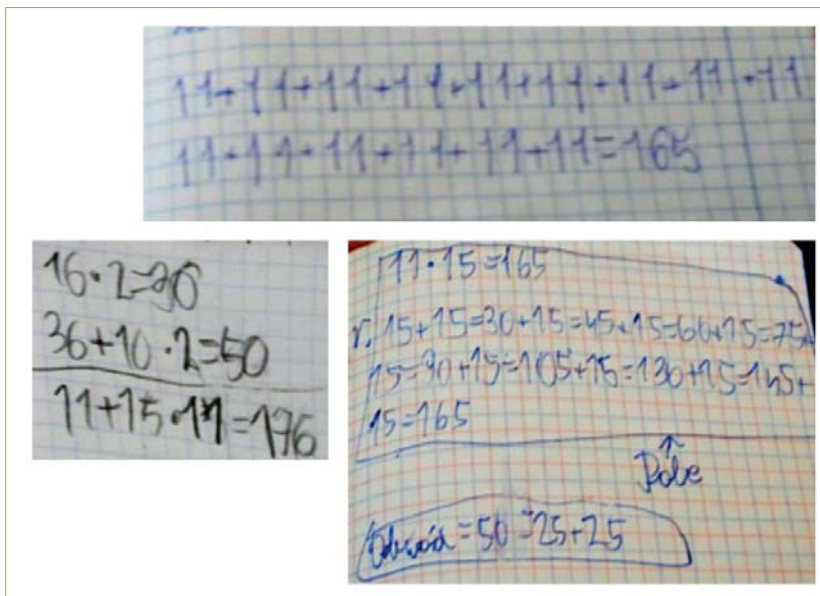 11+11+11+11+11+11+11+11+11
11+11+11+11+11+11=165
16·2=36
36+10·2=50
11+15·11=176
11·15=165
r. 15+15=30+15=45+15=60+15=75+
15=90+15=105+15=130+15=145+
15=165
↑
Pole
Obwód = 50 = 25+25